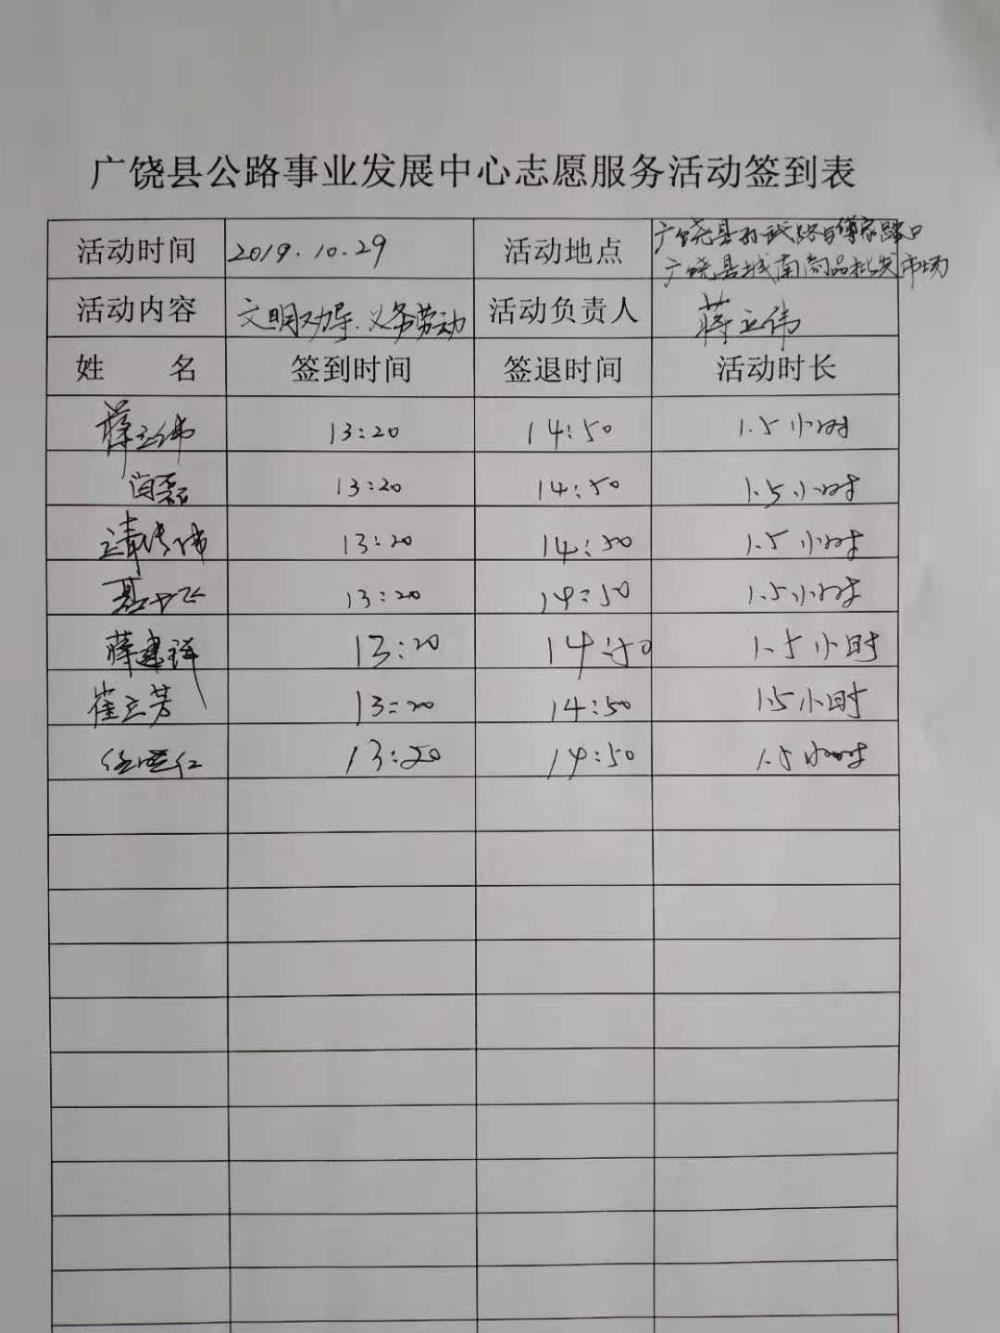 广饶县公路事业发展中心志愿服务活动签到表
活动时间 2019.10.29 活动地点 广饶县孙武路与傅家路口
广饶县城南商品批发市场
活动内容 文明劝导、义务劳动 活动负责人 蒋立伟
姓 名 签到时间 签退时间 活动时长
蒋立伟 13:20 14:50 1.5小时
闫磊 13:20 14:50 1.5小时
13:20 14:50 1.5小时
13:20 14:50 1.5小时
薛建祥 13:20 14:50 1.5小时
崔立芳 13:20 14:50 1.5小时
任晓红 13:20 14:50 1.5小时